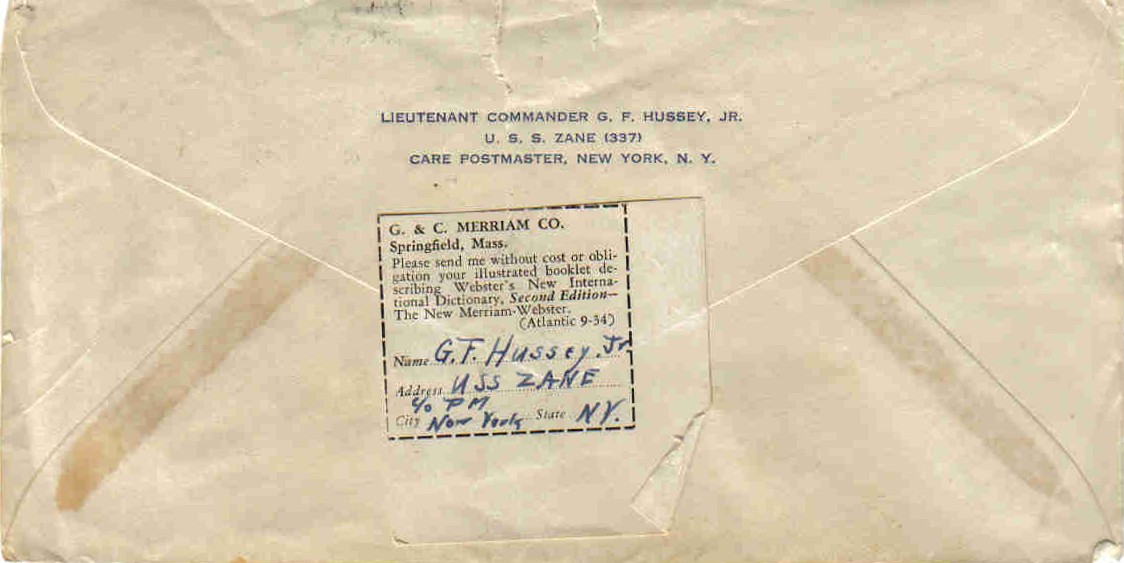 LIEUTENANT COMMANDER G. F. HUSSEY, JR.
U. S. S. ZANE (337)
CARE POSTMASTER, NEW YORK, N. Y.
G. & C. MERRIAM CO.
Springfield, Mass.
Please send me without cost or obli-
gation your illustrated booklet de-
scribing Webster's New Interna-
tional Dictionary, Second Edition—
The New Merriam-Webster.
(Atlantic 9-34)
Name G.F. Hussey. Jr.
Address USS ZANE
c/o PM
City New York State NY.